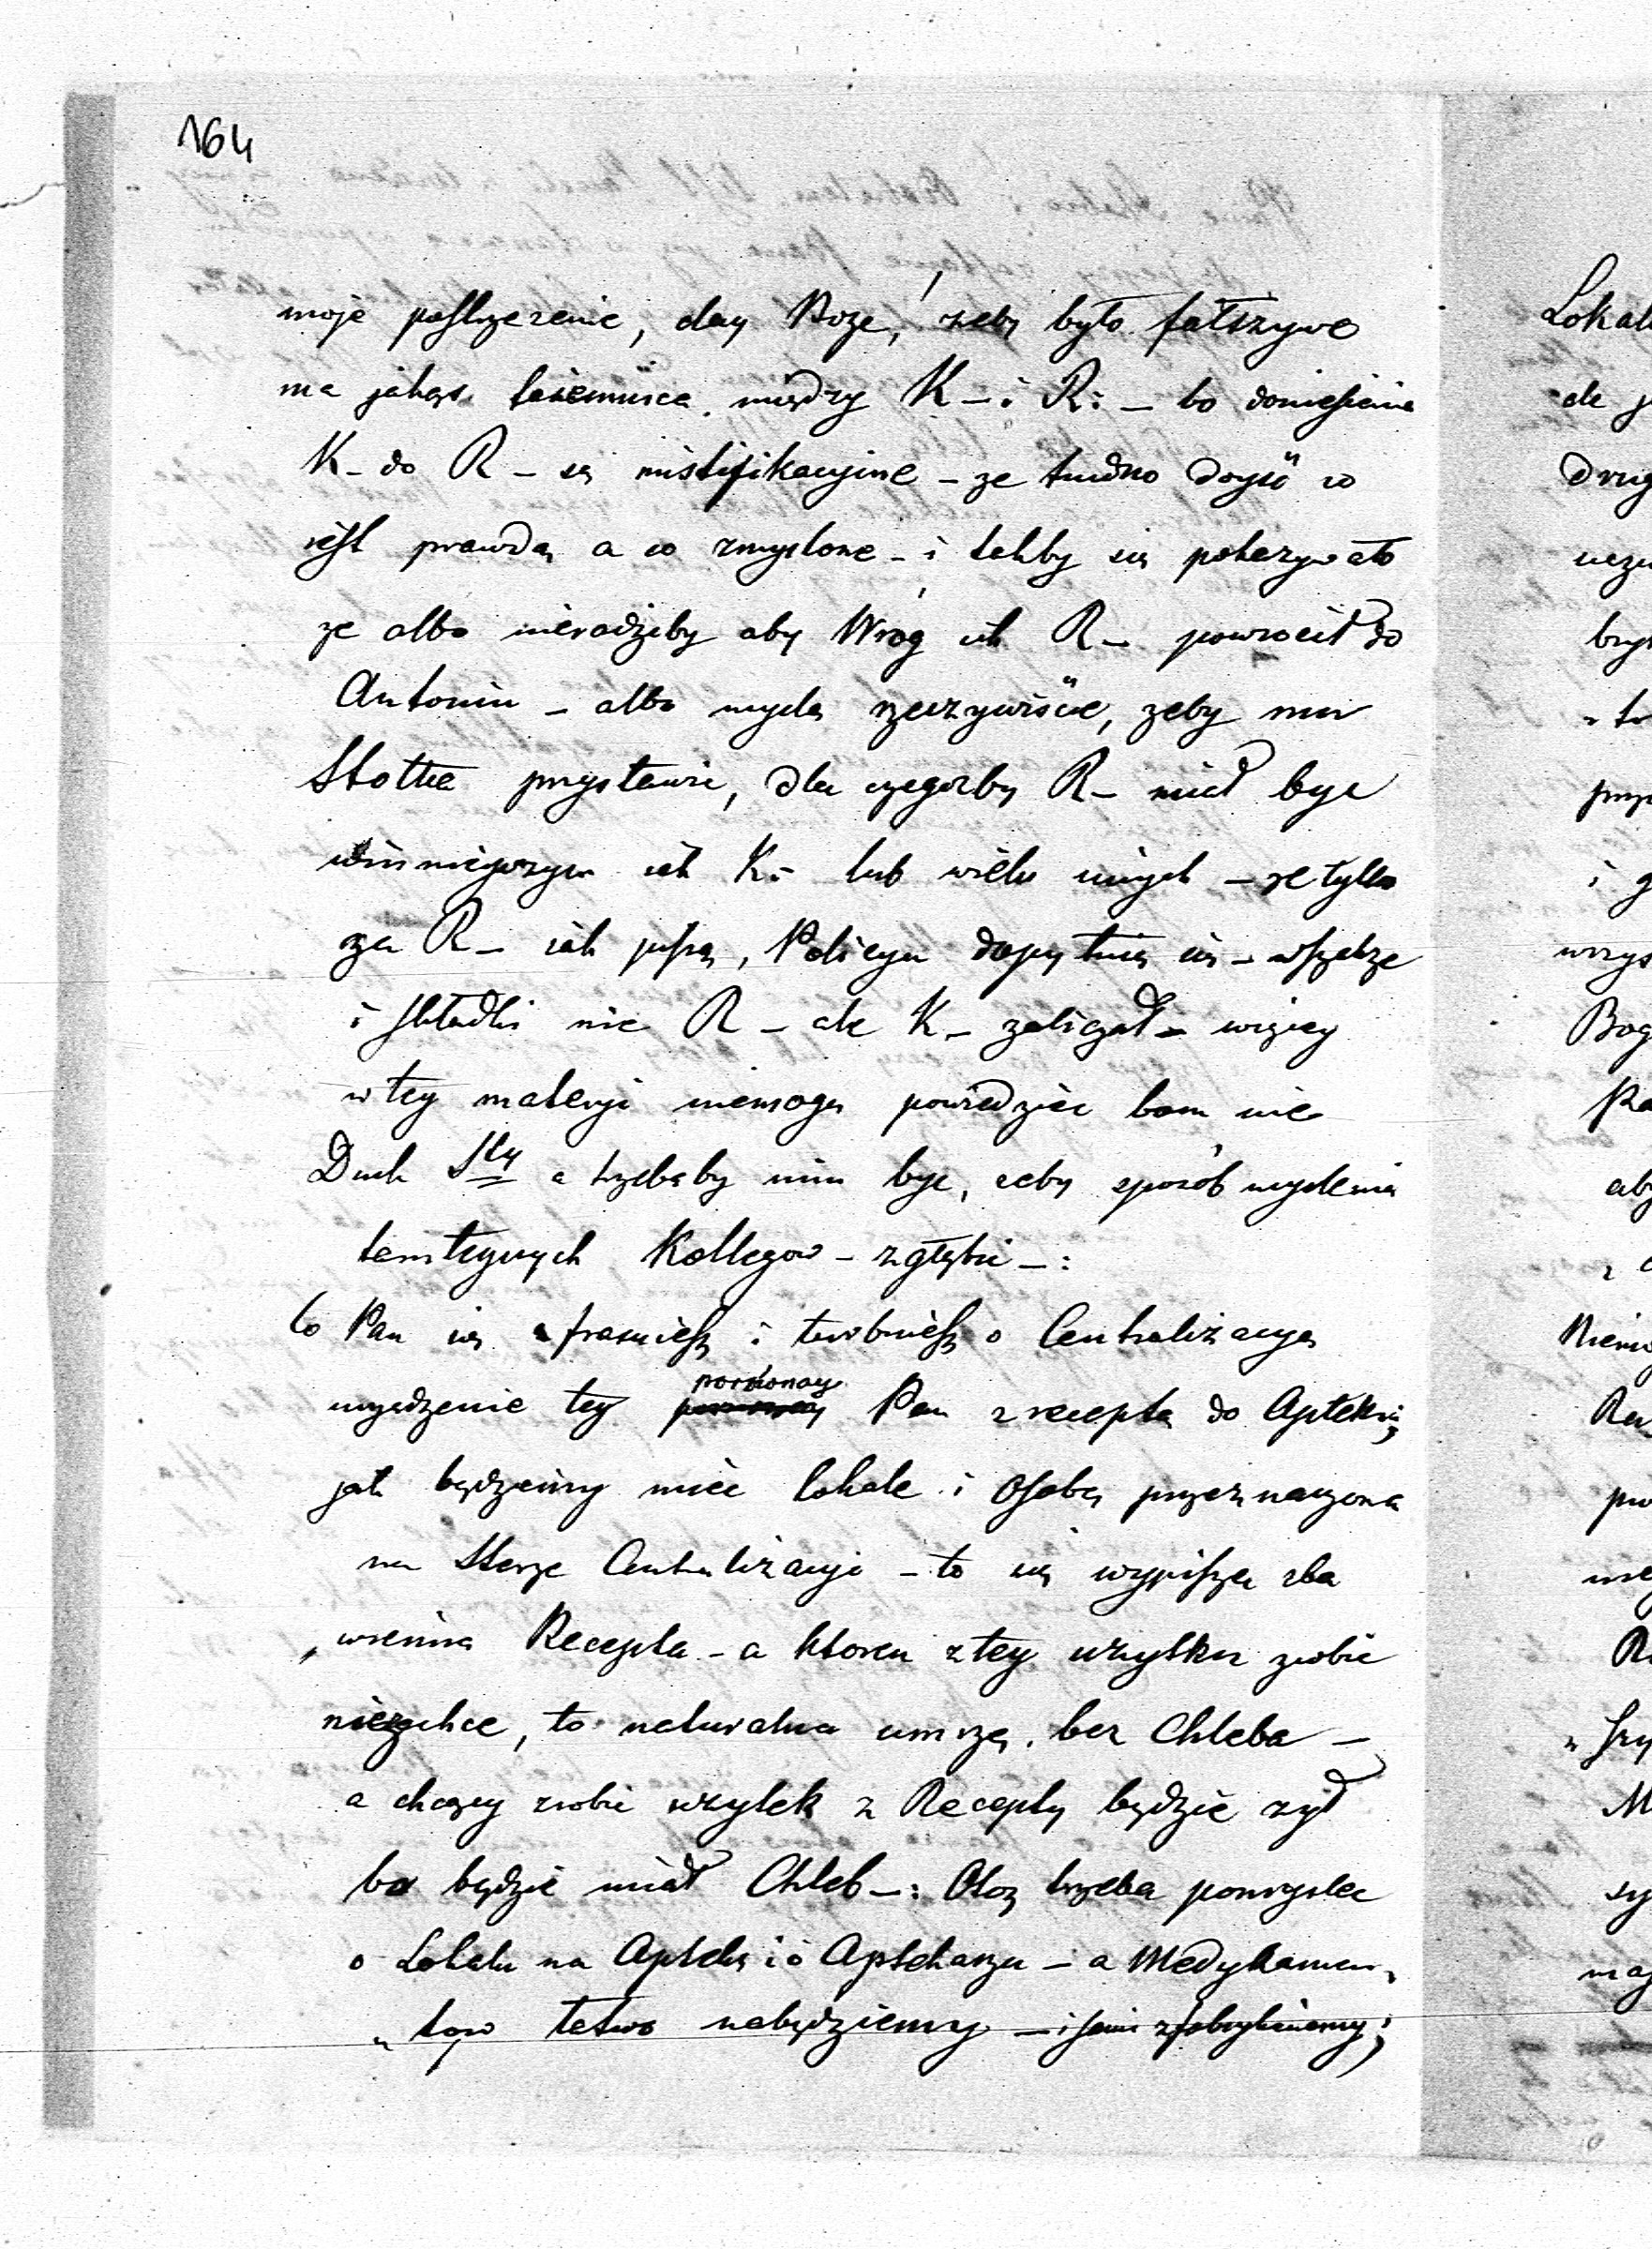 164
moje postrzezenie, day Boze, zeby było fałszywe
ma jakąs taiemnica między K – i R: – bo doniesienia
K – do R – są mistifikacyjne – ze trudno dojsć co
iest prawdą a co zmyslone – i takby się pokazywało
ze albo nieradziby aby Wrog iak R – powrocił do
Antonin – albo myslą rzeczywiście, zeby mu
Stołka przystawic, dla czegozby R – miał byc
winnieyszym iak K: lub wielu innych – ze tylko
za R – iak piszą, Policya dopytuie się – wszakze
i składki nie R – ale K – zaliczał – więcey
w tey materyi niemogę powiedziec bom nie
Duch Sty a trzebaby nim byc, zeby sposób myslenia
tamteyszych Kollegow – zgłębic – :
Co Pan się frasuiesz i turbuiesz o Centralizacyą
urządzenie tey porownay Pan z receptą do Apteki;
jak będziemy miec lokale i Osobę przeznaczoną
na Straze Centralizacyi – to się wypisze zba
„wienna Recepta – a ktoren z tey uzytku zrobic
niezechce, to naturalna umrze bez Chleba –
a chcący zrobic uzytek z Recepty będzie zył
bo będzie miał Chleb – : Otoz trzeba pomyslec
o Lokalu na Aptekę i o Aptekarzu – a Medykamen„
„tow łatwo nabędziemy – i sami zfabrykuiemy;
Lokal
ale j
drug
uczu
przy
i g
wszys
Bog
aby
Niemo
mie
M